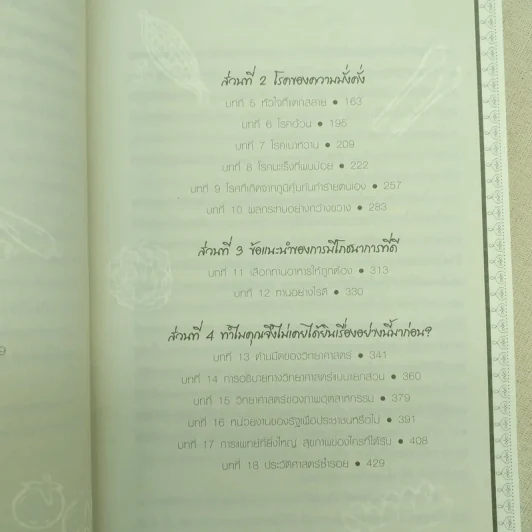 ส่วนที่ 2 โรคของความมั่งคั่ง
บทที่ 5 หัวใจที่แตกสลาย • 163
บทที่ 6 โรคอ้วน • 195
บทที่ 7 โรคเบาหวาน • 209
บทที่ 8 โรคมะเร็งที่พบบ่อย • 222
บทที่ 9 โรคที่เกิดจากภูมิคุ้มกันทำร้ายตนเอง • 257
บทที่ 10 ผลกระทบอย่างกว้างขวาง • 283
ส่วนที่ 3 ข้อแนะนำของการมีโภชนาการที่ดี
บทที่ 11 เลือกทานอาหารให้ถูกต้อง • 313
บทที่ 12 ทานอย่างไรดี • 330
ส่วนที่ 4 ทำไมคุณจึงไม่เคยได้ยินเรื่องอย่างนี้มาก่อน?
บทที่ 13 ด้านมืดของวิทยาศาสตร์ • 341
บทที่ 14 การอธิบายทางวิทยาศาสตร์แบบแยกส่วน • 360
บทที่ 15 วิทยาศาสตร์ของภาพอุตสาหกรรม • 379
บทที่ 16 หน่วยงานของรัฐเพื่อประชาชนหรือไม่ • 391
บทที่ 17 การแพทย์ที่ยิ่งใหญ่ สุขภาพของใครที่ได้รับ • 408
บทที่ 18 ประวัติศาสตร์ซ้ำรอย • 429